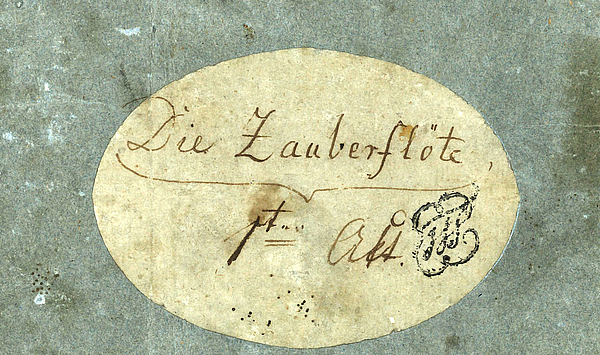 Die Zauberflöte,
1t. Act.